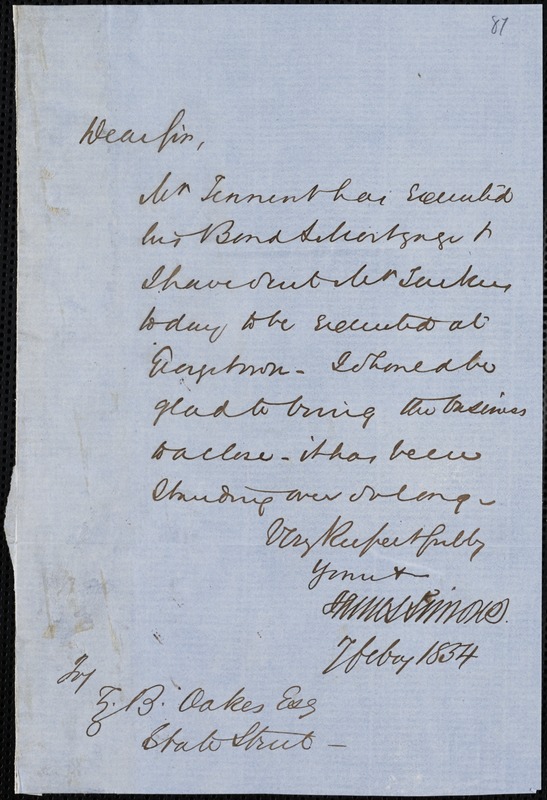 87
Dear Sir,
Mr Tennent has executed
his Bond & Mortgage &
I have sent Mr Tuckers
to day to be executed at
Georgetown - I should be
glad to bring the business
to a close - it has been
standing over so long -
Very Respectfully
Yours &
James Simons.
7 Feby 1854
To/
Z. B. Oakes Esq
State Street -